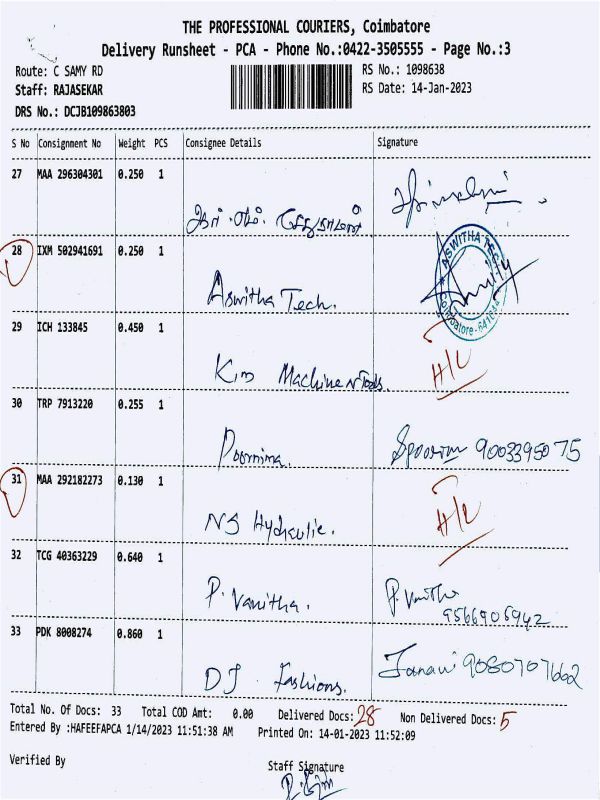 THE PROFESSIONAL COURIERS, Coimbatore
Delivery Runsheet - PCA - Phone No.:0422-3505555 - Page No.:3
Route: C SAMY RD RS No.: 1098638
Staff: RAJASEKAR RS Date: 14-Jan-2023
DRS No.: DCJB109863803
S No Consignment No Weight PCS Consignee Details Signature
27 MAA 296304301 0.250 1
28 IXM 502941691 0.250 1 Aswitha Tech. ASWITHA TEC Coimbatore-641044
29 ICH 133845 0.450 1 Kim Machine Tools H/L
30 TRP 7913220 0.255 1 Poornima. 9003395075
31 MAA 292182273 0.130 1 NS Hydraulic. H/L
32 TCG 40363229 0.640 1 P. Vanitha. P. Vanitha
9566905942
33 PDK 8008274 0.860 1 DJ Fashions. Janani 9080707662
Total No. Of Docs: 33 Total COD Amt: 0.00 Delivered Docs: 28 Non Delivered Docs: 5
Entered By :HAFEEFAPCA 1/14/2023 11:51:38 AM Printed On: 14-01-2023 11:52:09
Verified By Staff Signature